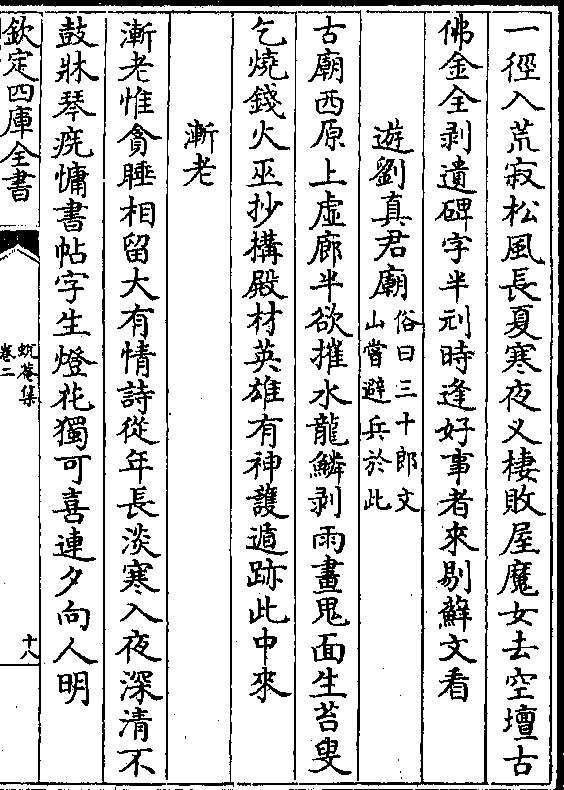 一徑入荒寂松風長夏寒夜义棲敗屋魔女去空壇古
佛金全剥遺碑字半刓時逢好事者來剔蘚文看
遊劉真君廟俗曰三十郎文
山嘗避兵於此
古廟西原上虚廊半欲摧水龍鱗剥雨畫鬼面生苔叟
乞燒錢火巫抄搆殿材英雄有神護遁跡此中來
漸老
漸老惟貪睡相留大有情詩從年長淡寒入夜深清不
鼓牀琴疣慵書帖字生燈花獨可喜連夕向人明
欽定四庫全書
蚖菴集
卷二
十八